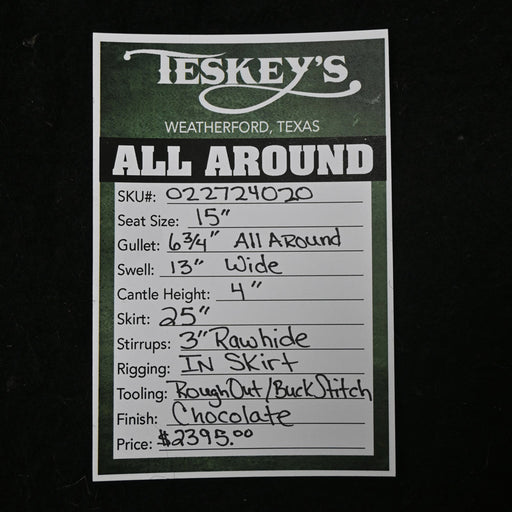 TESKEY'S
WEATHERFORD, TEXAS
ALL AROUND
SKU#: 022724020
Seat Size: 15"
Gullet: 6 3/4" All Around
Swell: 13" Wide
Cantle Height: 4"
Skirt: 25"
Stirrups: 3" Rawhide
Rigging: IN SKirt
Tooling: RoughOut/BuckStitch
Finish: Chocolate
Price: $2395.00